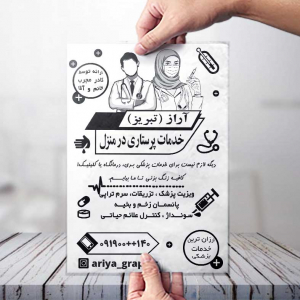 ارائه توسط
کادر مجرب
خانم و آقا
آراز (تبریز)
خدمات پرستاری در منزل
دیگه لازم نیست برای خدمات پزشکی بری، درمانگاه یا کلینیک!
کافیه زنگ بزنی تا ما بیایم.
ویزیت پزشک، تزریقات، سرم تراپی
پانسمان زخم و بخیه
سونداژ، کنترل علائم حیاتی
ارزان ترین
خدمات
پزشکی
ariya_grap